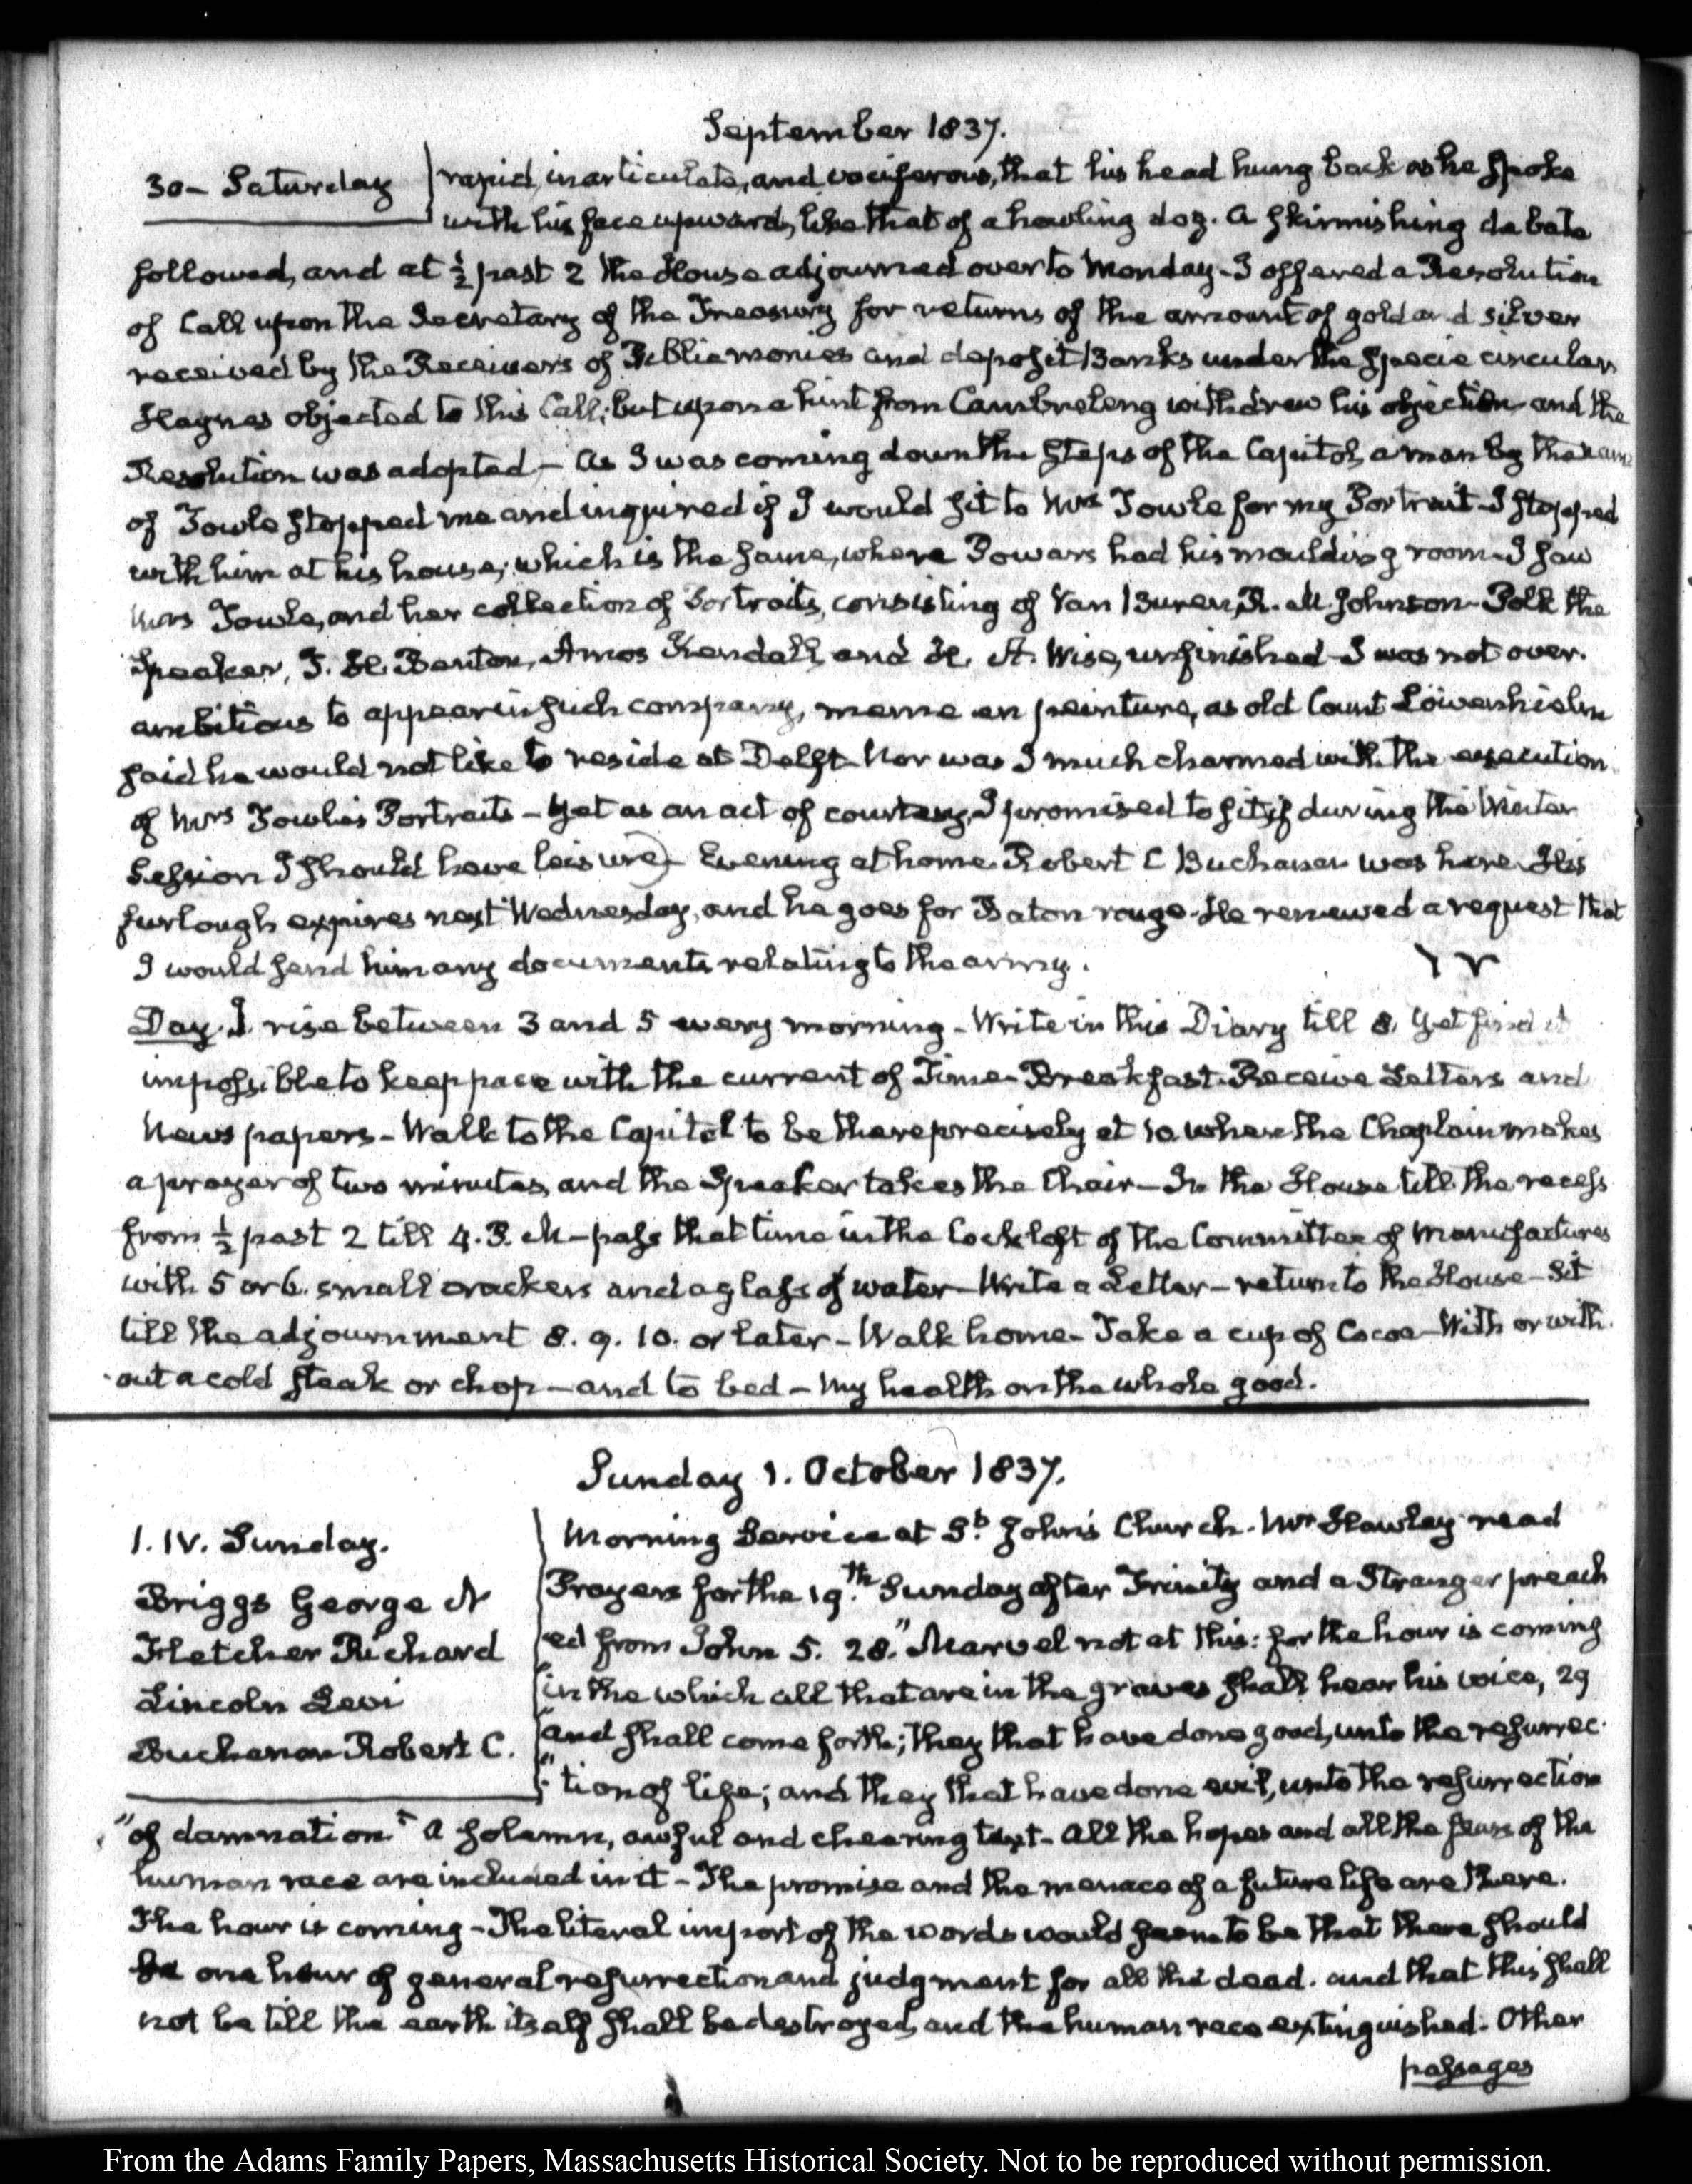 September 1837.
30 – Saturday
rapid, inarticulate, and vociferous, that his head hung back as he spoke
with his face upward, like that of a howling dog. A skirmishing debate
followed, and at ½ past 2 the House adjourned over to Monday – I offered a Resolution
of Call upon the Secretary of the Treasury for returns of the amount of gold and silver
received by the Receivers of Public monies and deposit Banks under the Specie circular
Haynes objected to this Call; but upon a hint from Cambreleng withdrew his objection and the
Resolution was adopted – As I was coming down the steps of the Capitol, a man by the name
of Towle stopped me and inquired if I would sit to Mrs Towle for my Portrait – I stopped
with him at his house, which is the same, where Powers had his moulding room – I saw
Mrs Towle, and her collection of Portraits, consisting of Van Buren, R. M. Johnson – Polk the
Speaker, T. H. Benton, Amos Kendall, and H. A. Wise, unfinished – I was not over.
ambitious to appear in such company, meme en peinture, as old Count Löwenhielm
said he would not like to reside at Delft – Nor was I much charmed with the execution
of Mrs Towle's Portraits – Yet as an act of courtesy, I promised to sit, if during the Winter
Session I should have leisure) – Evening at home. Robert C Buchanan was here – His
furlough expires next Wednesday, and he goes for Baton rouge – He renewed a request that
I would send him any documents relating to the army.
Day. I rise between 3 and 5 every morning – Write in this Diary till 8. Yet find it
impossible to keep pace with the current of Time – Breakfast – Receive Letters and
News papers – Walk to the Capitol to be there precisely at 10 when the Chaplain makes
a prayer of two minutes, and the Speaker takes the Chair – In the House till the recess
from ½ past 2 till 4. P. M – pass that time in the Cockloft of the Committee of Manufactures
with 5 or 6. small crackers and a glass of water – Write a Letter – return to the House – Sit
till the adjournment 8. 9. 10. or later – Walk home – Take a cup of Cocoa – With or with.
out a cold steak or chop – and to bed – My health on the whole good.
Sunday 1. October 1837.
1. IV. Sunday.
Briggs George N
Fletcher Richard
Lincoln Levi
Buchanan Robert C.
Morning Service at St. John's Church. Mr Hawley read
Prayers for the 19th. Sunday after Trinity and a Stranger preach
ed from John 5. 28. "Marvel not at this: for the hour is coming
"in the which all that are in the graves shall hear his voice, 29
"and shall come forth; they that have done good, unto the resurrec.
"tion of life; and they that have done evil, unto the resurrection
"of damnation." A solemn, awful and cheering text – All the hopes and all the fears of the
human race are included in it – The promise and the menace of a future life are there.
The hour is coming – The literal import of the words would seem to be that there should
be one hour of general resurrection and judgment for all the dead. and that this shall
not be till the earth itself shall be destroyed, and the human race extinguished. Other
passages
From the Adams Family Papers, Massachusetts Historical Society. Not to be reproduced without permission.